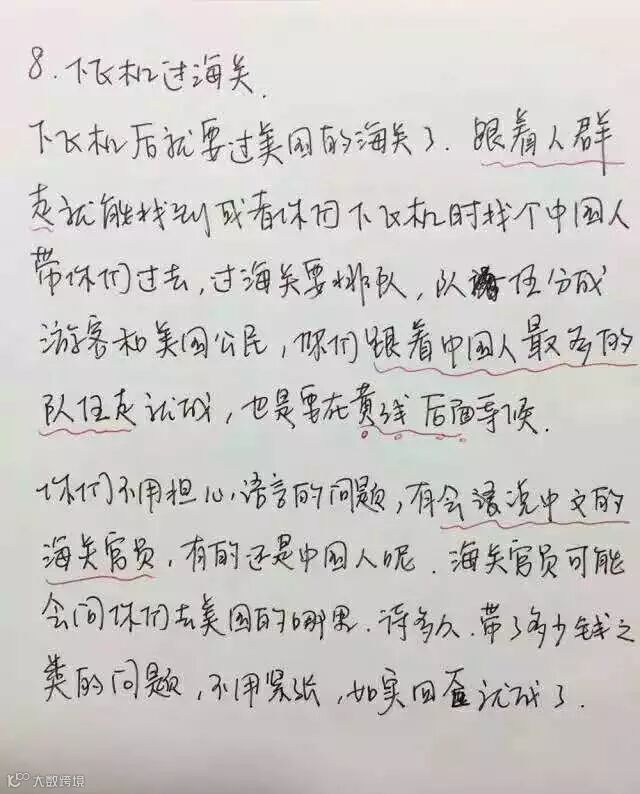 8.下飞机过海关.
下飞机后就要过美国的海关了.跟着人群
走就能找到或者你们下飞机时找个中国人
带你们过去,过海关要排队,队伍分成
游客和美国公民,你们跟着中国人最多的
队伍走就成,也是要在黄线后面等候.
你们不用担心语言的问题,有会说中文的
海关官员,有的还是中国人呢.海关官员可能
会问你们去美国的哪里.待多久.带了多少钱之
类的问题,不用紧张,如实回答就成了.
大数跨境